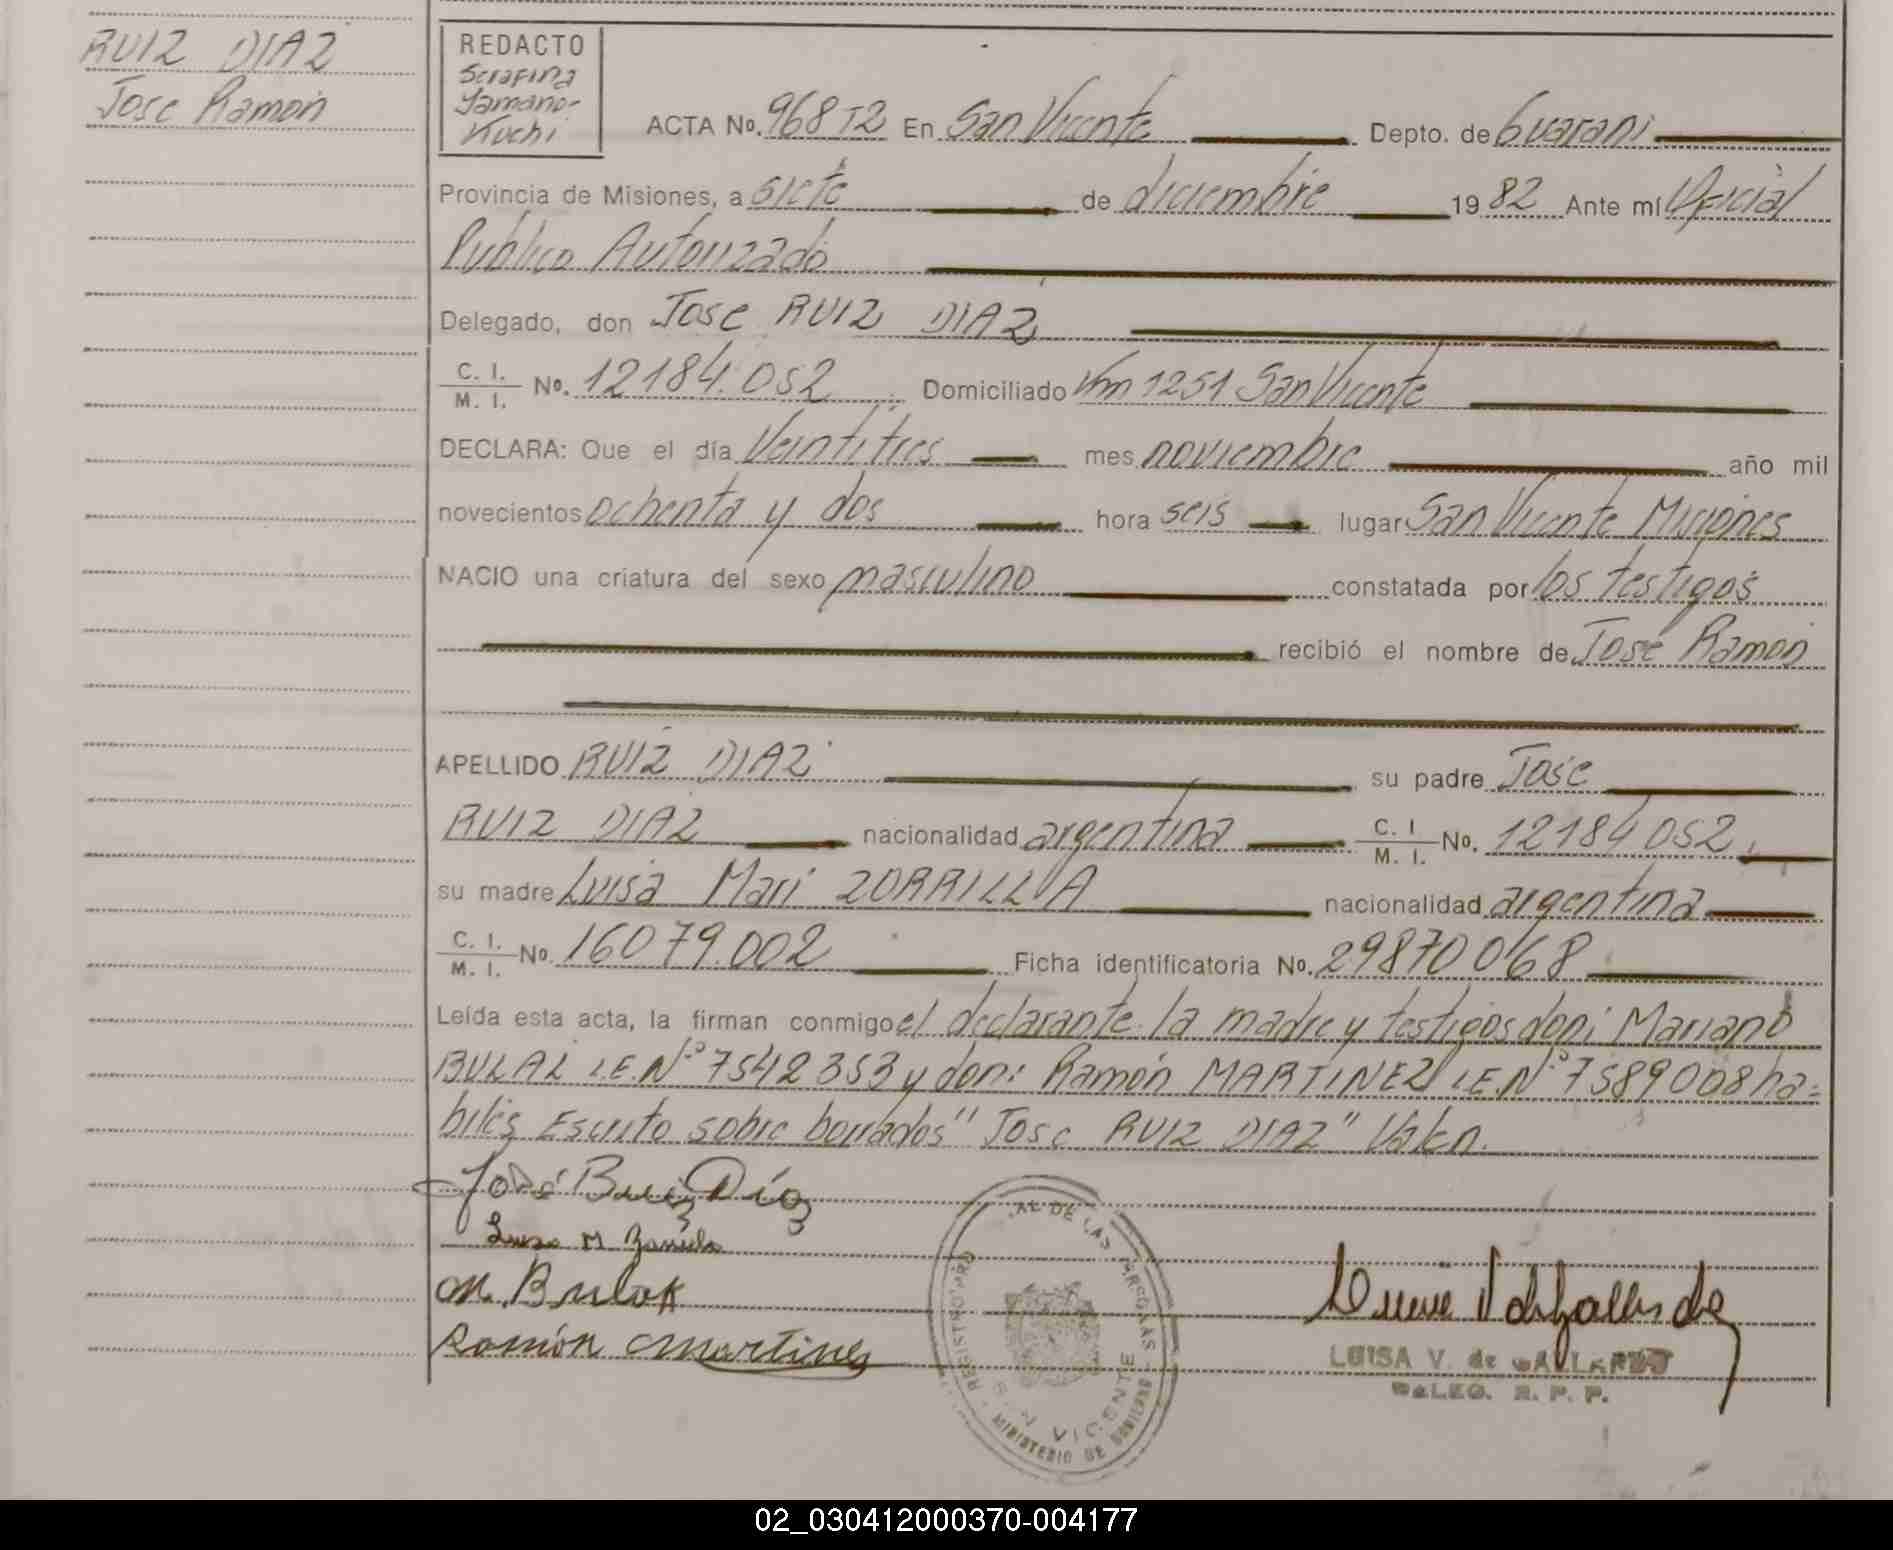 RUIZ DIAZ
Jose Ramon
REDACTO
Serafina
Yamano-
Kuchi
ACTA No. 968 T2 En San Vicente Depto. de Guarani
Provincia de Misiones, a siete de diciembre 1982 Ante mí Oficial
Publico Autorizado
Delegado, don Jose RUIZ DIAZ
C. I.
M. I. No. 12184.052 Domiciliado Km 1251 San Vicente
DECLARA: Que el día Veintitres mes noviembre año mil
novecientos ochenta y dos hora seis lugar San Vicente Misiones
NACIO una criatura del sexo masculino constatada por los testigos
recibió el nombre de José Ramon
APELLIDO RUIZ DIAZ su padre Jose
RUIZ DIAZ nacionalidad argentina C. I
M. I. No. 12184052
su madre Luisa Mari ZORRILLA nacionalidad argentina
C. I.
M. I. No. 16079.002 Ficha identificatoria No. 29870068
Leída esta acta, la firman conmigo el declarante la madre y testigos don: Mariano
BULAL L.E.Nº 7542353 y don: Ramón MARTINEZ L.E.Nº 7589008 ha=
biles Escrito sobre borrados "Jose RUIZ DIAZ" Valen.
José Ruiz Díaz
Luisa M
M. Bulak
Ramón Martinez
AL DE LAS PERSONAS
REGISTRO
SAN VICENTE
MINISTERIO DE GOBIERNO
LUISA V. de GALLARDO
DELEG. R. P. P.
02_030412000370-004177